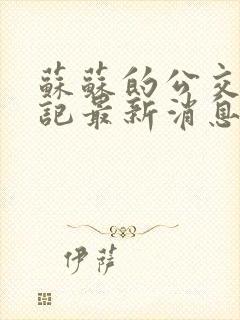 蘇蘇的公交
記最新消息
伊薩